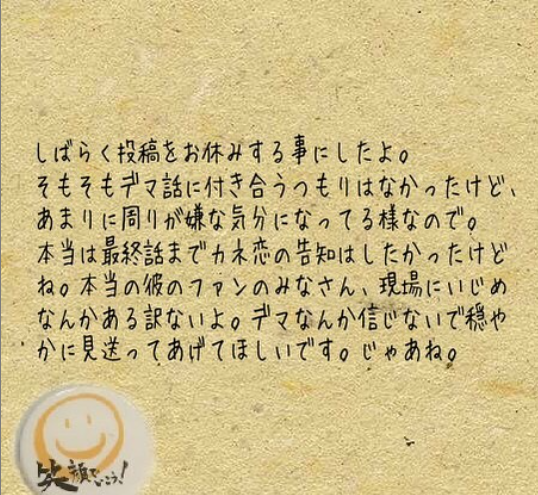 しばらく投稿をお休みする事にしたよ。
そもそもデマ話に付き合うつもりはなかったけど、
あまりに周りが嫌な気分になってる様なので。
本当は最終話までカネ恋の告知はしたかったけど
ね。本当の彼のファンのみなさん、現場にいじめ
なんかある訳ないよ。デマなんか信じないで穏や
かに見送ってあげてほしいです。じゃあね。
笑顔でいこう!